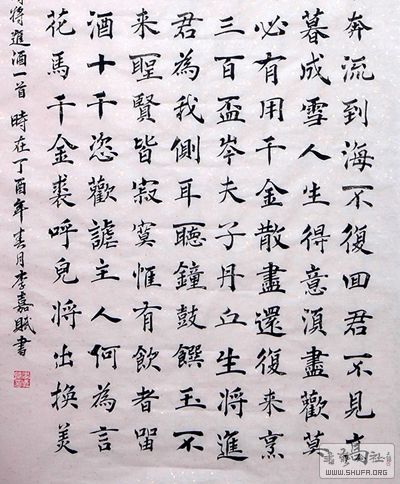 奔流到海不復回君不見高
暮成雪人生得意須盡歡莫
必有用千金散盡還復來烹
三百盃岑夫子丹丘生將進
君為我側耳聽鐘鼓饌玉不
來聖賢皆寂寞惟有飲者留
酒十千恣歡謔主人何為言
花馬千金裘呼兒將出換美
將進酒一首 時在丁酉年春月李嘉書
WWW.SHUFA.ORG